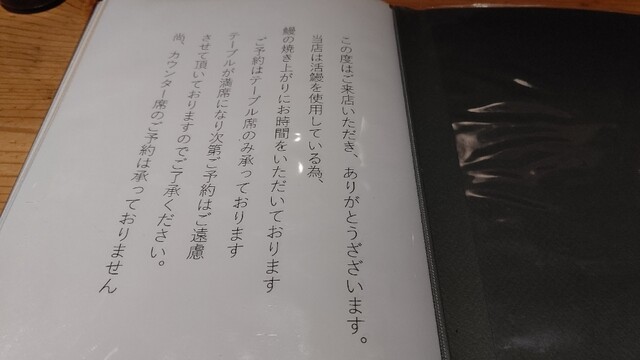 この度はご来店いただき、ありがとうございます。
当店は活鰻を使用している為、
鰻の焼き上がりにお時間をいただいております
ご予約はテーブル席のみ承っております
テーブルが満席になり次第ご予約はご遠慮
させて頂いておりますのでご了承ください。
尚、カウンター席のご予約は承っておりません